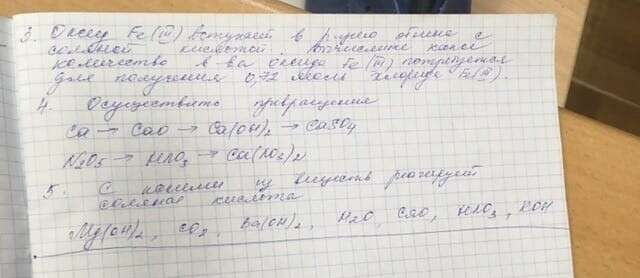 3. Оксид Fe(III) вступает в р-цию обмена с
соляной кислотой. Вычислите какое
количество в-ва оксида Fe(III) потребуется
для получения 0,72 моль хлорида Fe(III).
4. Осуществить превращения
Ca → CaO → Ca(OH)₂ → CaSO₄
N₂O₅ → HNO₃ → Ca(NO₃)₂
5. С какими из веществ реагирует
соляная кислота
Mg(OH)₂, CO₂, Ba(OH)₂, H₂O, CaO, HNO₃, KOH